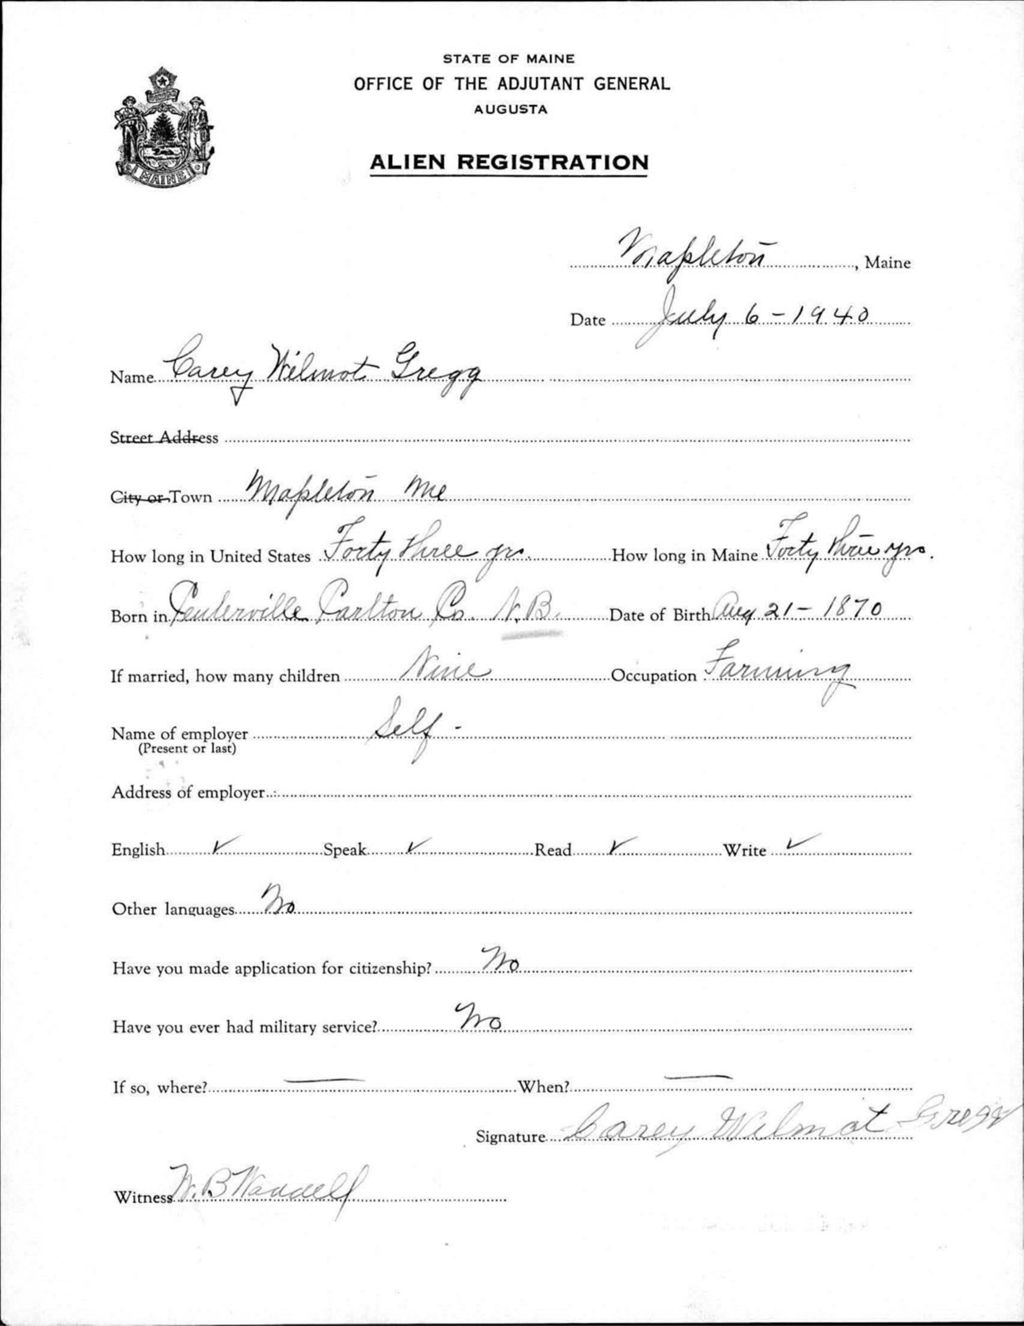 STATE OF MAINE
OFFICE OF THE ADJUTANT GENERAL
AUGUSTA
ALIEN REGISTRATION
MAINE
Mapleton, Maine
Date July 6 - 1940
Name Carey Wilmot Gregg
Street Address
City or Town Mapleton Me
How long in United States Forty three yrs. How long in Maine Forty three yrs.
Born in Centerville Carlton Co. N.B. Date of Birth Aug 21 - 1870
If married, how many children Nine Occupation Farming
Name of employer Self -
(Present or last)
Address of employer
English ✓ Speak ✓ Read ✓ Write ✓
Other languages No
Have you made application for citizenship? No
Have you ever had military service? No
If so, where? — When? —
Signature Carey Wilmot Gregg
Witness W. B. Waddell